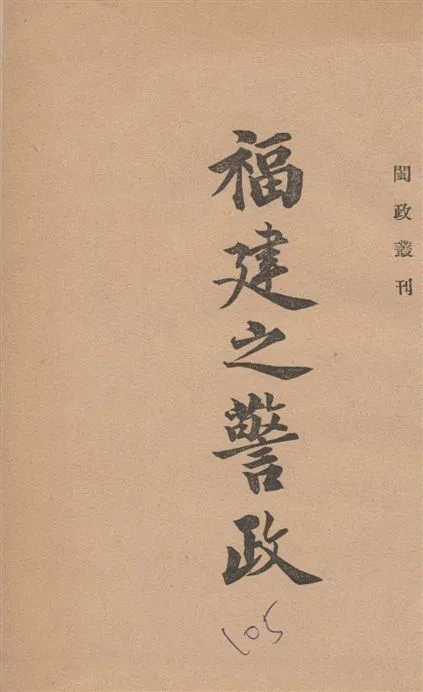 閩政叢刊
福建之警政
105